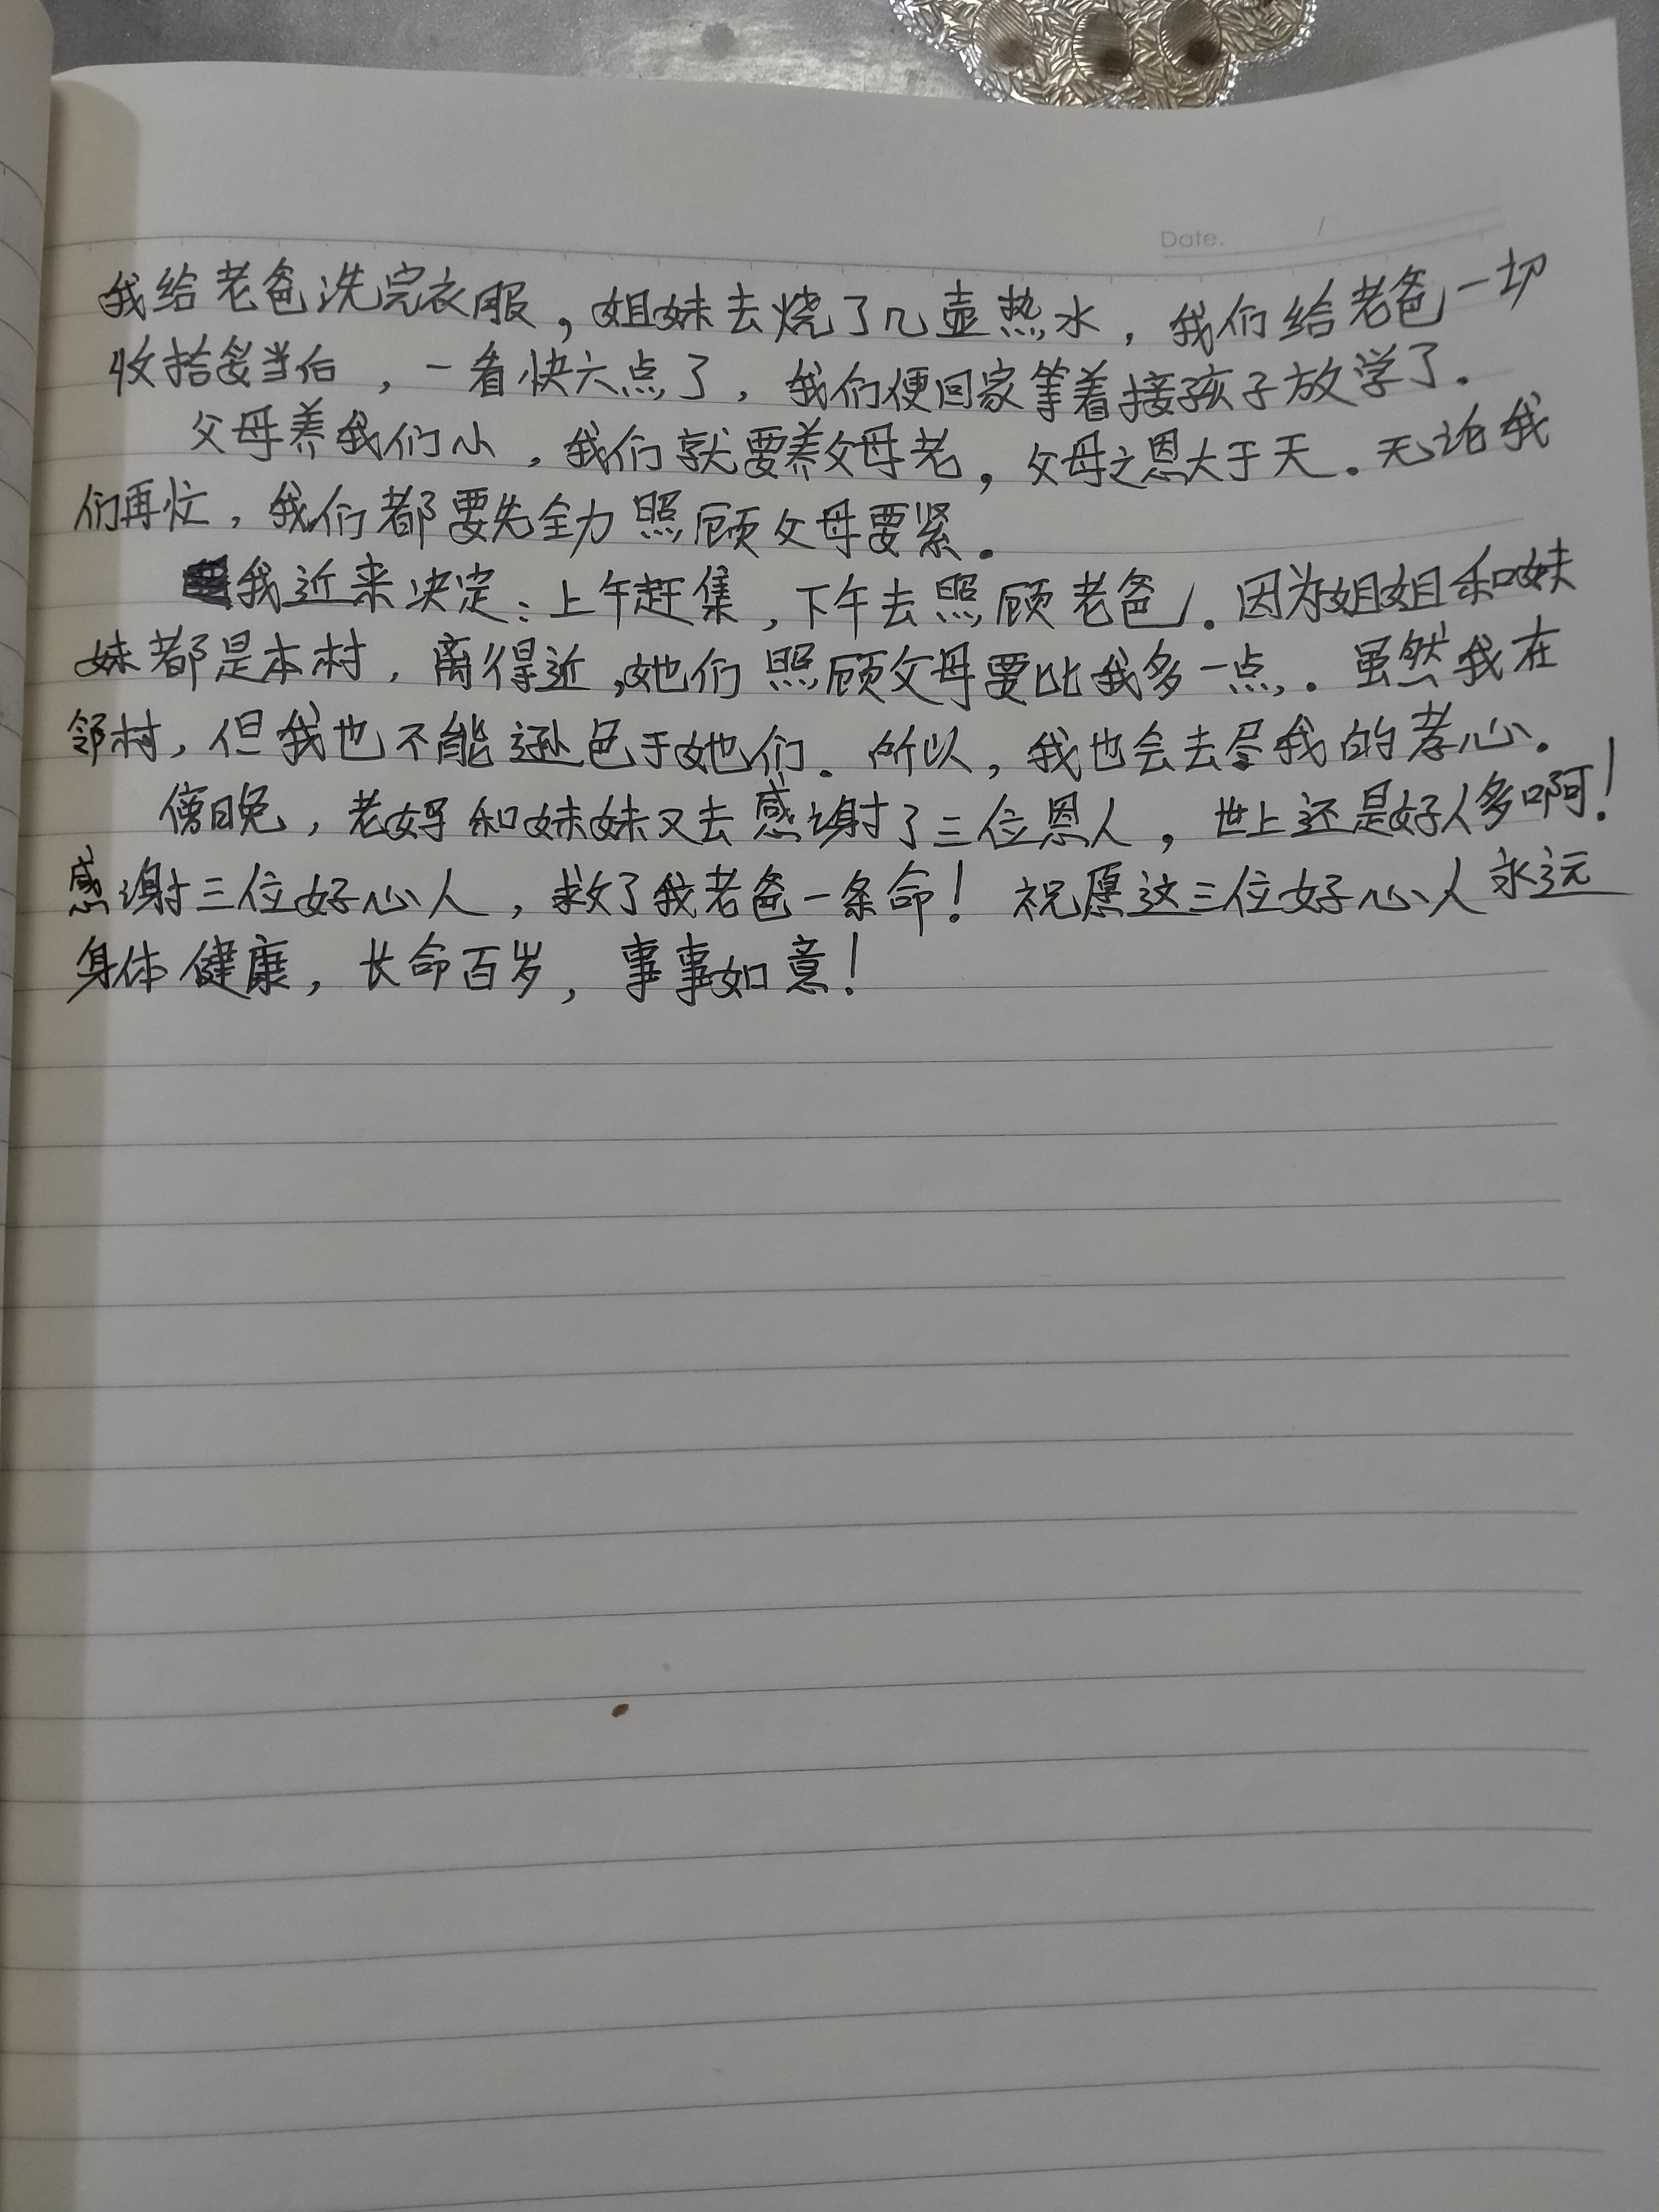 Date. /
我给老爸洗完衣服，姐妹去烧了几壶热水，我们给老爸一切
收拾妥当后，一看快六点了，我们便回家等着接孩子放学了.
父母养我们小，我们就要养父母老，父母之恩大于天.无论我
们再忙，我们都要先全力照顾父母要紧.
我近来决定:上午赶集，下午去照顾老爸.因为姐姐和妹
妹都是本村，离得近，她们照顾父母要比我多一点.虽然我在
邻村，但我也不能逊色于她们.所以，我也会去尽我的孝心.
傍晚，老妈和妹妹又去感谢了三位恩人，世上还是好人多啊!
感谢三位好心人，救了我老爸一条命!祝愿这三位好心人永远
身体健康，长命百岁，事事如意!